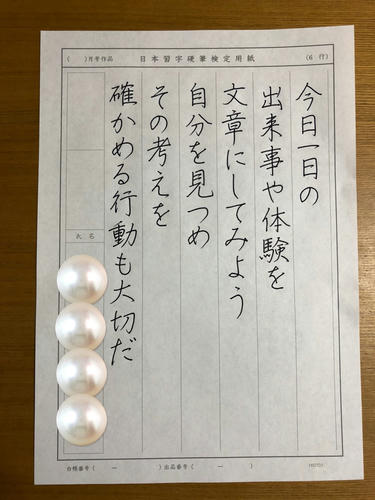 ( )月号作品
日本習字硬筆検定用紙
(6 行)
今日一日の
出来事や体験を
文章にしてみよう
自分を見つめ
その考えを
確かめる行動も大切だ
氏名
白帳番号( － )出品番号( － )